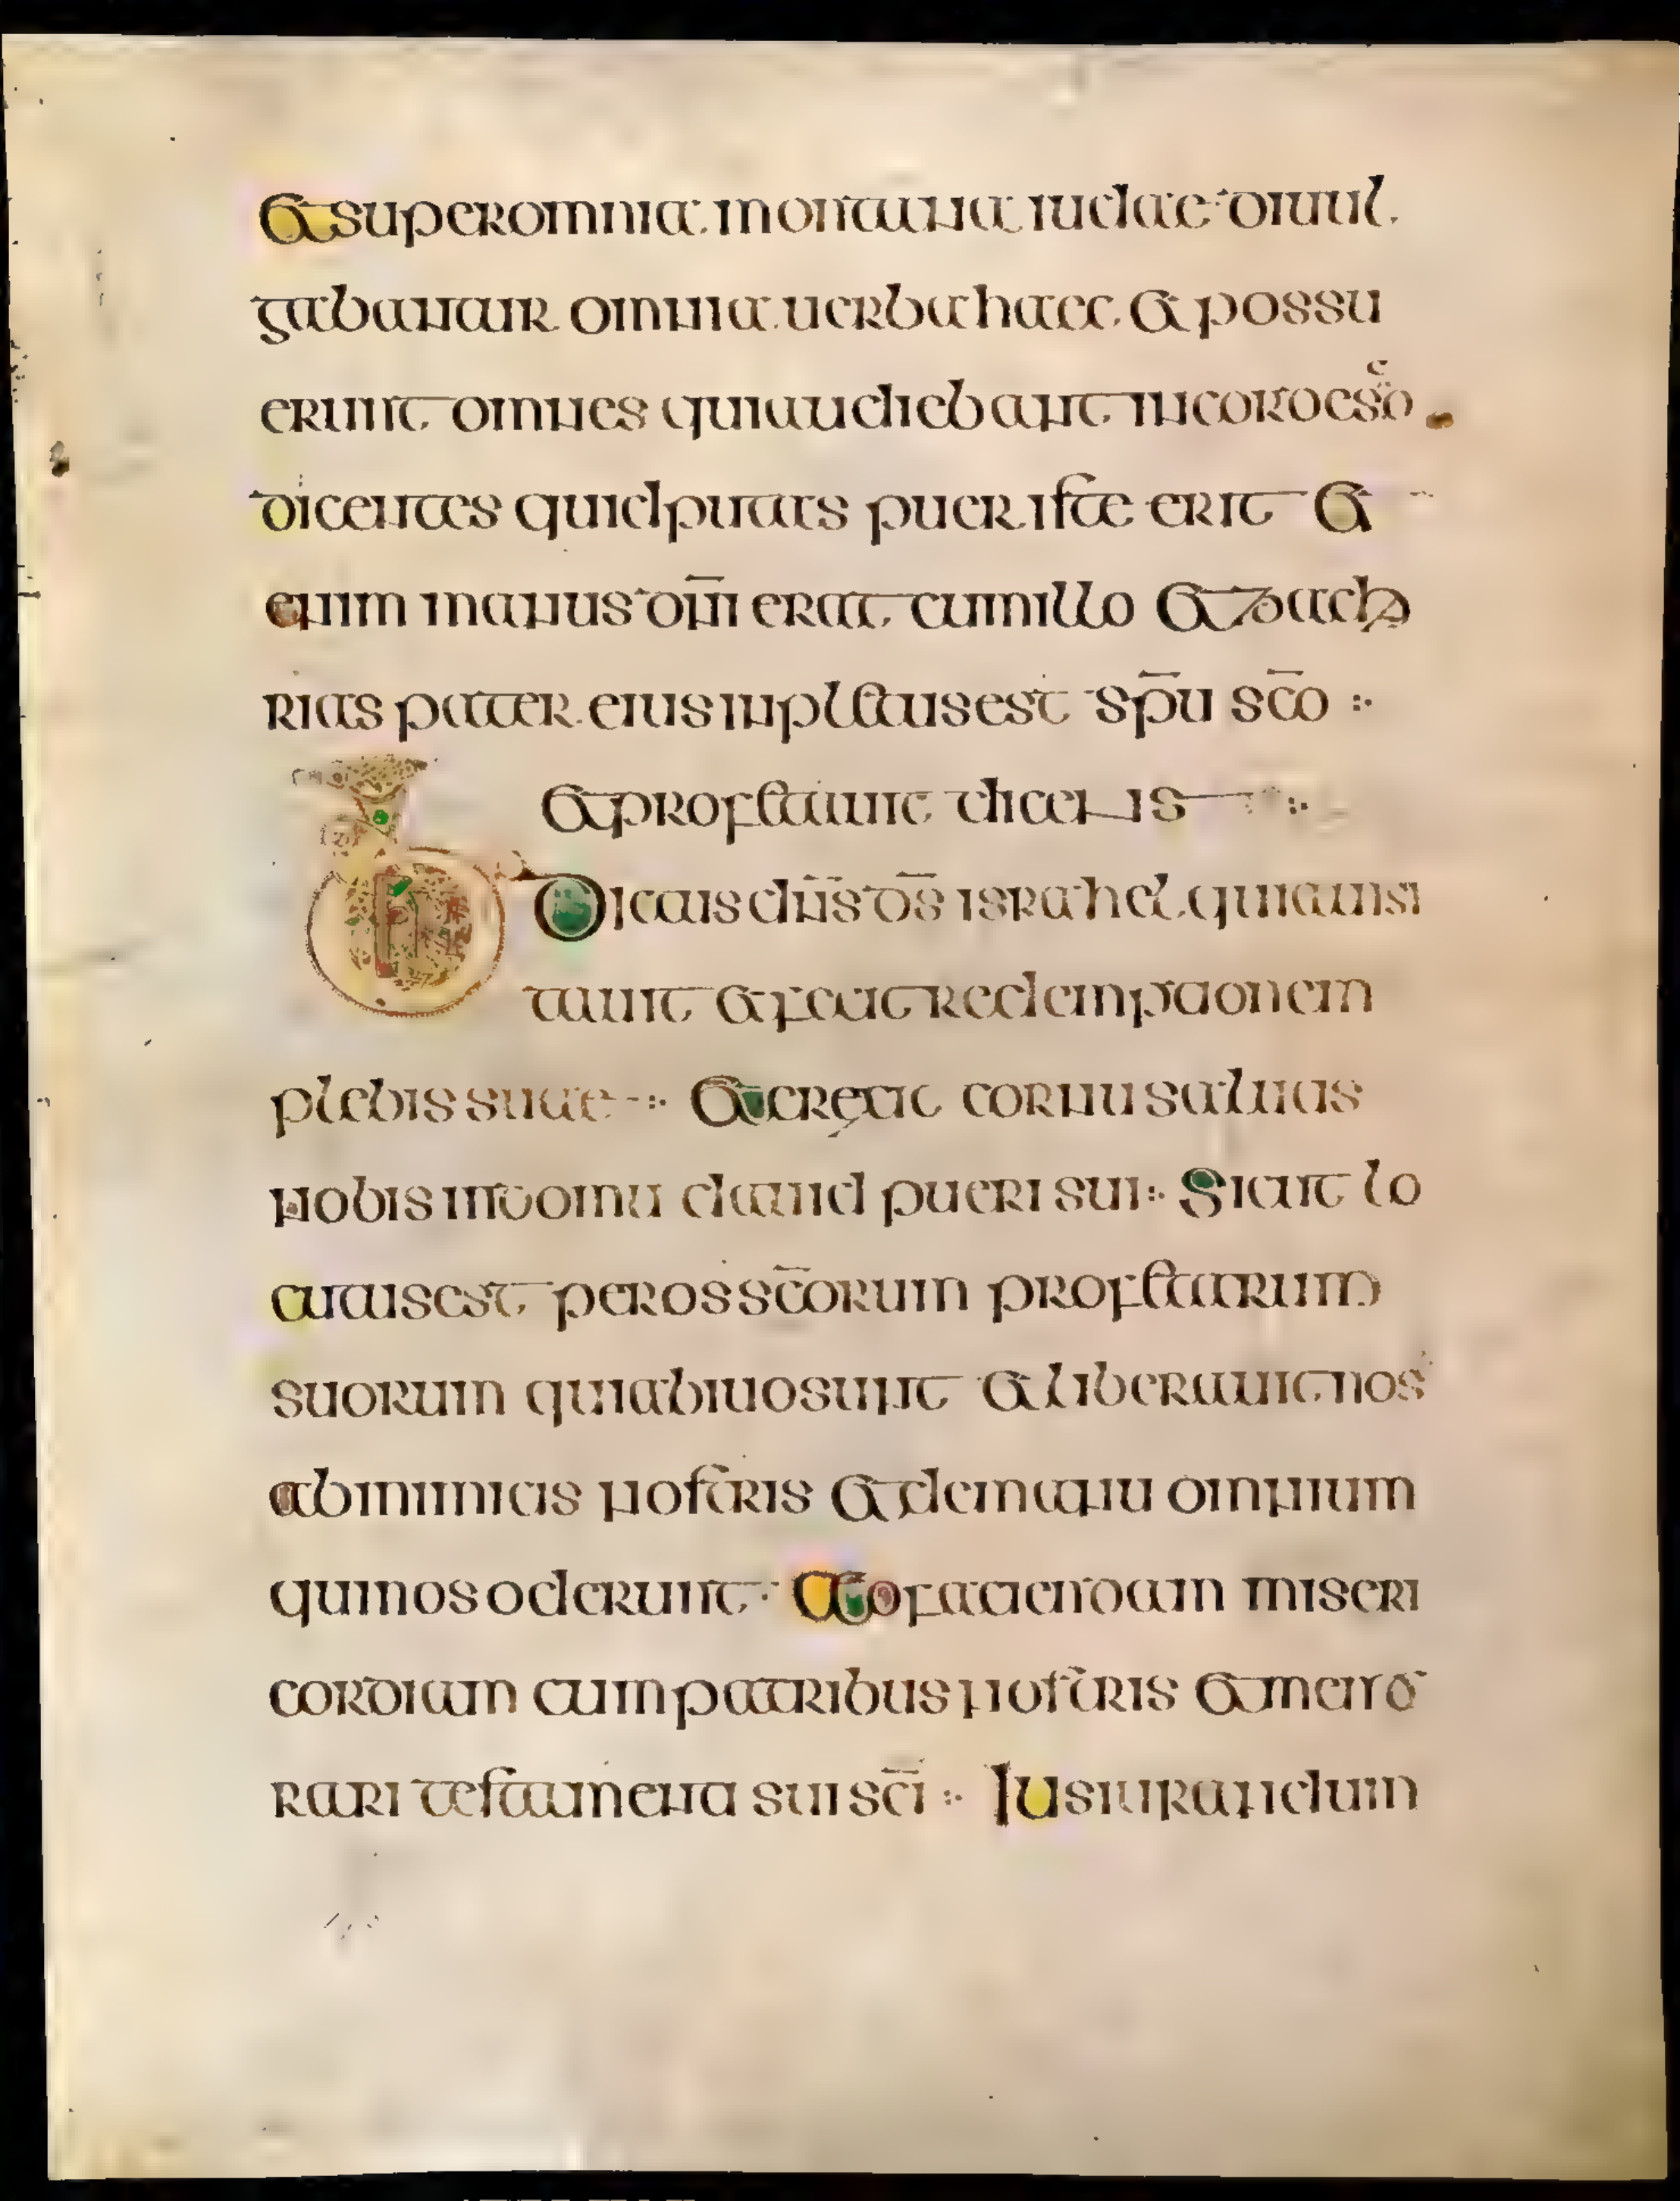 Et super omnia montana iudae diuul
gabantur omnia uerba haec. Et possu
erunt omnes qui audiebant in cordeso
dicentes quid putas puer iste erit Et
enim manus dn̄i erat cum illo Et zacha
rias pater eius inpletus est sp̄u sc̄o :·
Et profetauit dicens :·
Benedictus dn̄s ds̄ israhel quia uisi
tauit et fecit redemptionem
plebis suae :· Et erexit cornu salutis
nobis in domu dauid pueri sui :· Sicut lo
cutus est per os sc̄orum profetarum
suorum qui ab euo sunt et liberauit nos
ab inimicis nostris et de manu omnium
qui nos oderunt · Ad faciendam miseri
cordiam cum patribus nostris et memo
rari testamenti sui sc̄i :· Iusiurandum